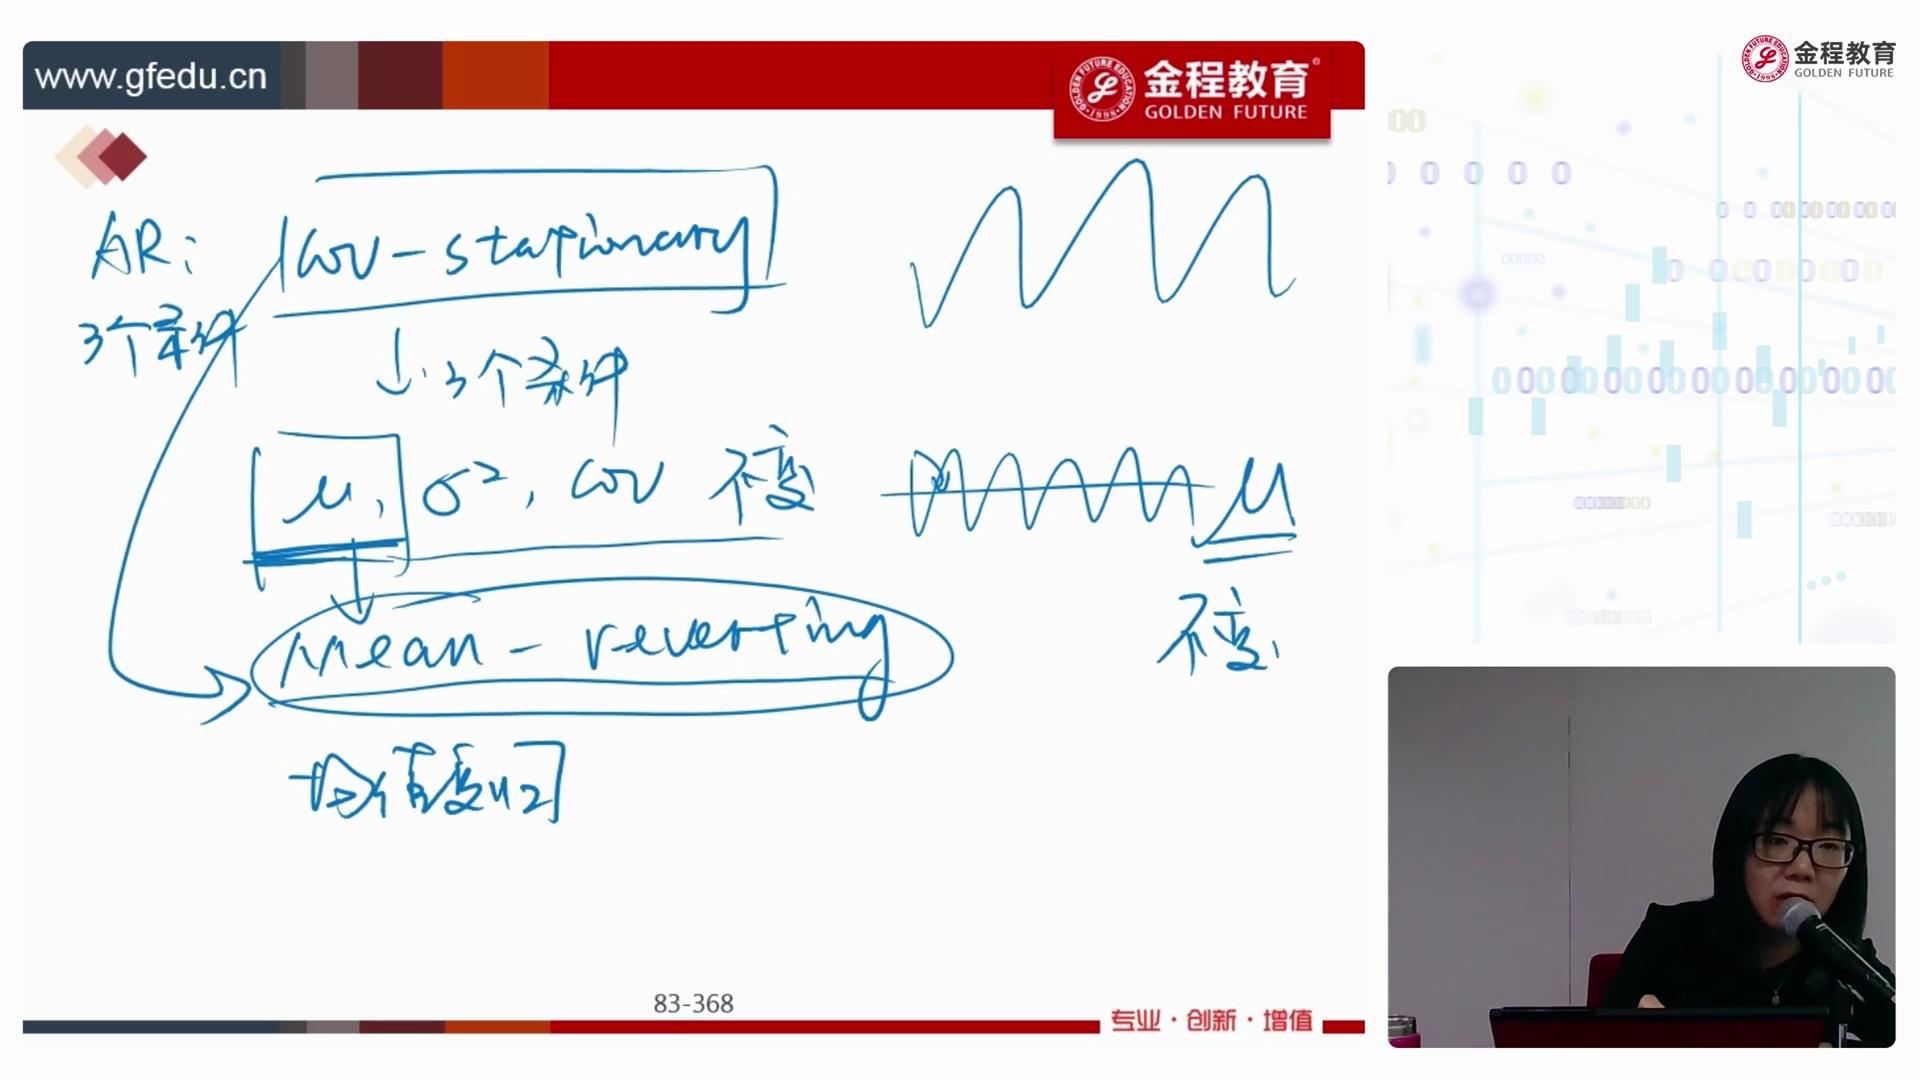 www.gfedu.cn
金程教育®
GOLDEN FUTURE
金程教育
GOLDEN FUTURE
AR: Cov-stationary
3个条件
↓ 3个条件
μ, σ², cov 不变
μ
不变
mean-reverting
均值复归
83-368
专业·创新·增值